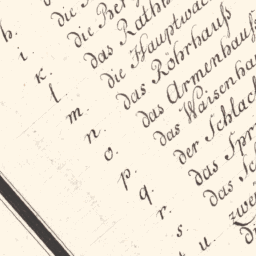 h. die
i. die Ber
k. das Rathh
l. die Hauptwac
m. das Rohrhauß
n. das Armenhauß
o. das Waisenhau
p. der Schlach
q. das Spr
r. das Sch
s. zwe
u. di